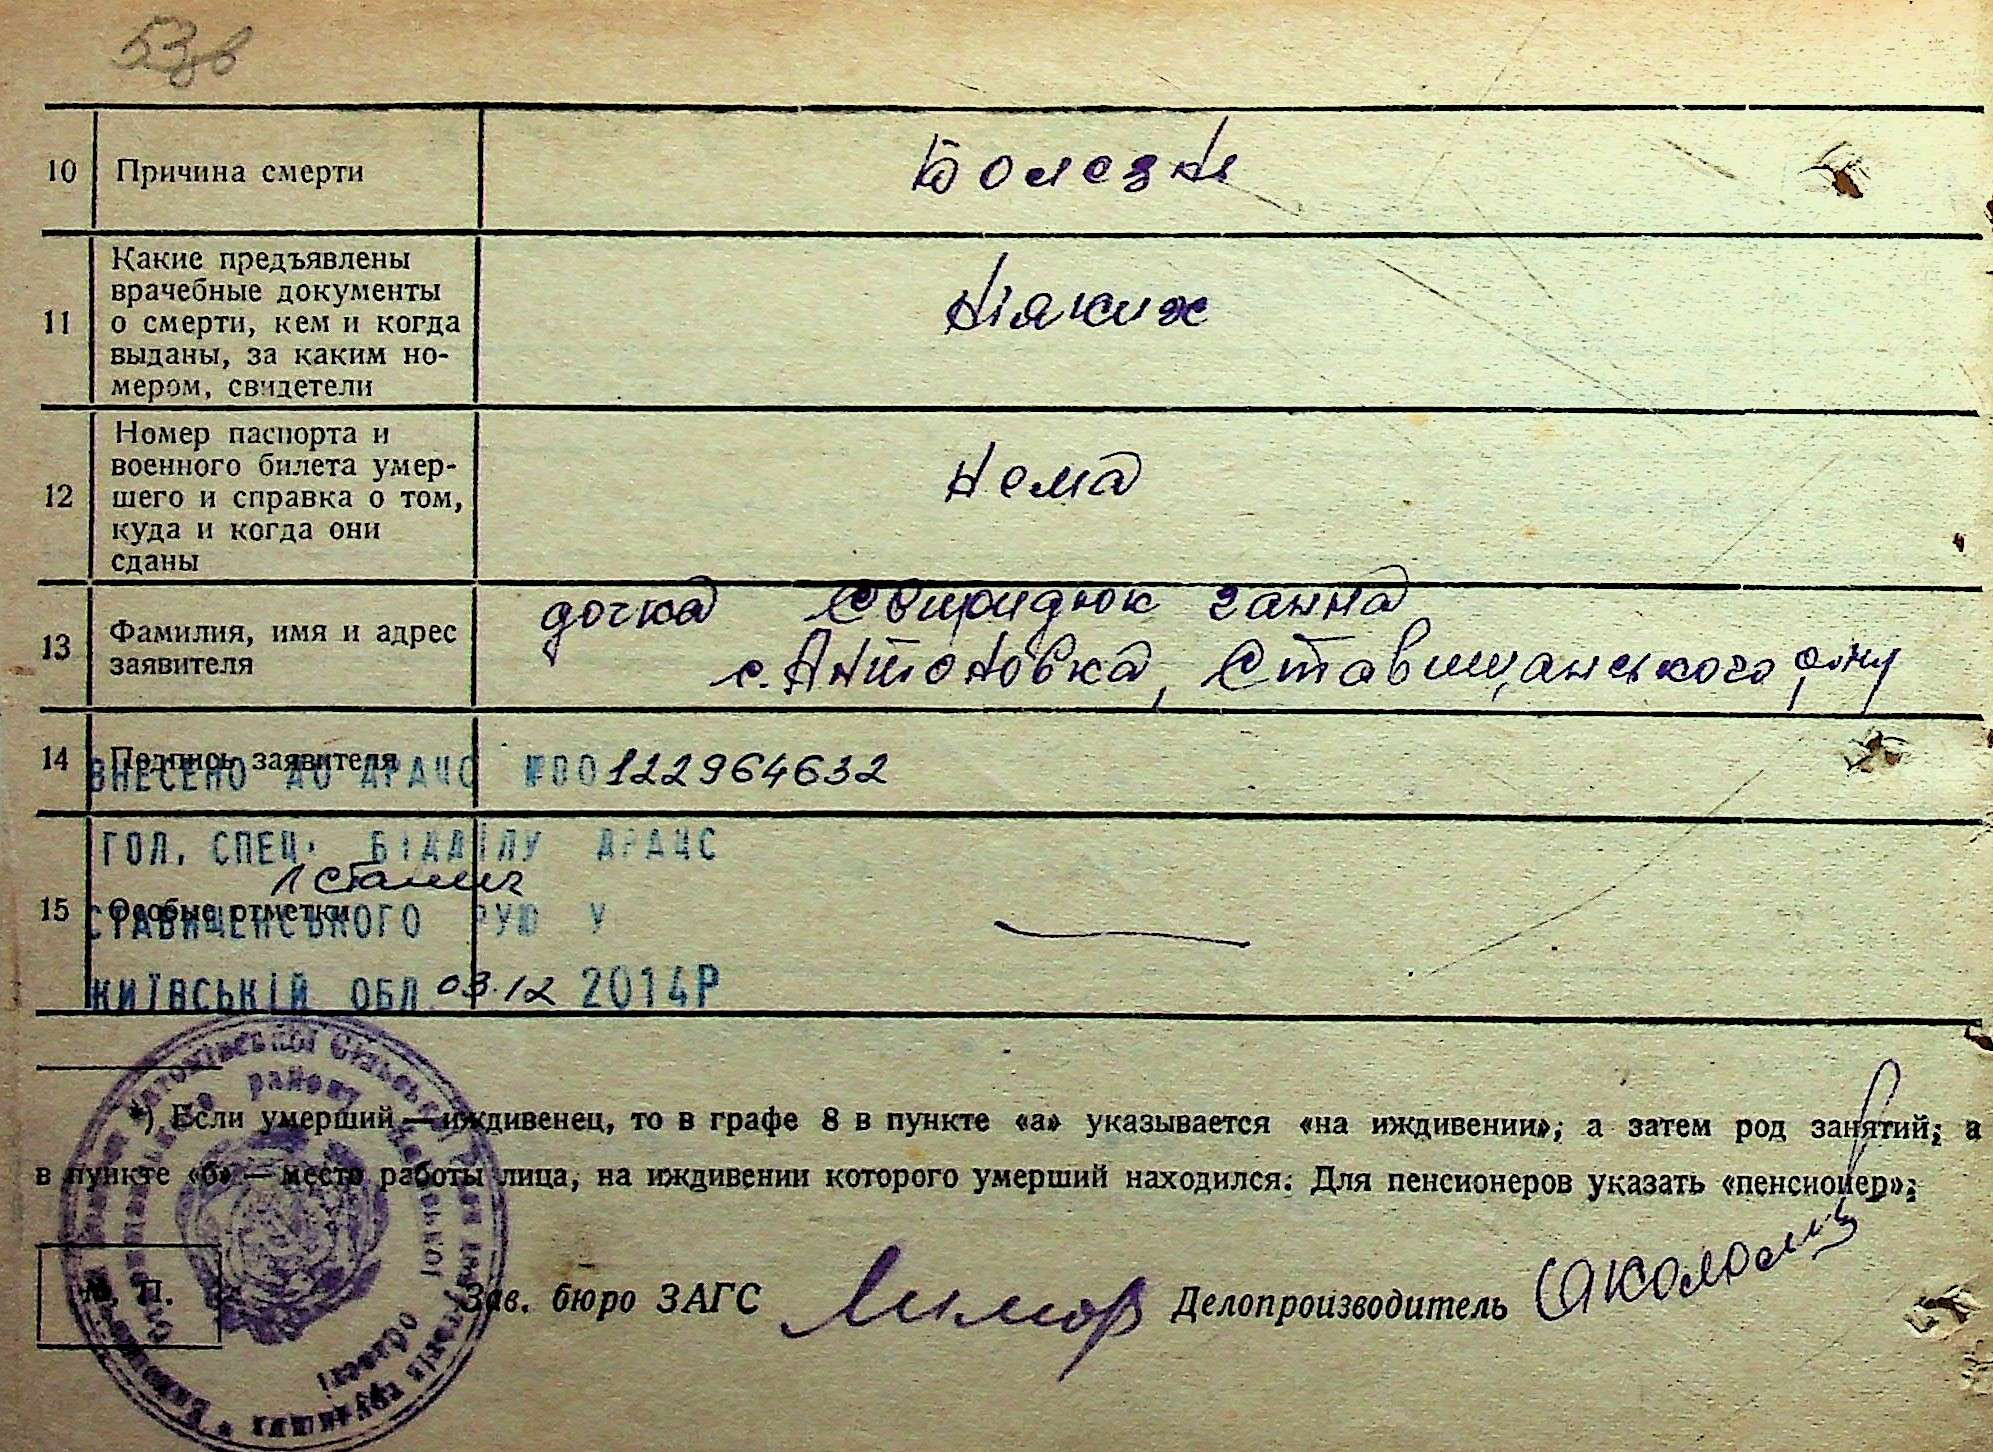 53зв
10 Причина смерти Болезн
11 Какие предъявлены
врачебные документы
о смерти, кем и когда
выданы, за каким но-
мером, свидетели
Ніяких
12 Номер паспорта и
военного билета умер-
шего и справка о том,
куда и когда они
сданы
Нема
13 Фамилия, имя и адрес
заявителя
дочка Свиридюк Ганна
с. Антоновка, Ставищанського р-ну
14 Подпись заявителя
ВНЕСЕНО ДО ДРАЦС №00122964632
ГОЛ. СПЕЦ. ВІДДІЛУ ДРАЦС
15 Особые отметки
СТАВИЩЕНСЬКОГО РУЮ У
КИЇВСЬКІЙ ОБЛ. 03.12 2014Р
*) Если умерший — иждивенец, то в графе 8 в пункте «а» указывается «на иждивении», а затем род занятий; а
в пункте «б» — место работы лица, на иждивении которого умерший находился. Для пенсионеров указать «пенсионер»;
М. П.
Зав. бюро ЗАГС Делопроизводитель
району
області